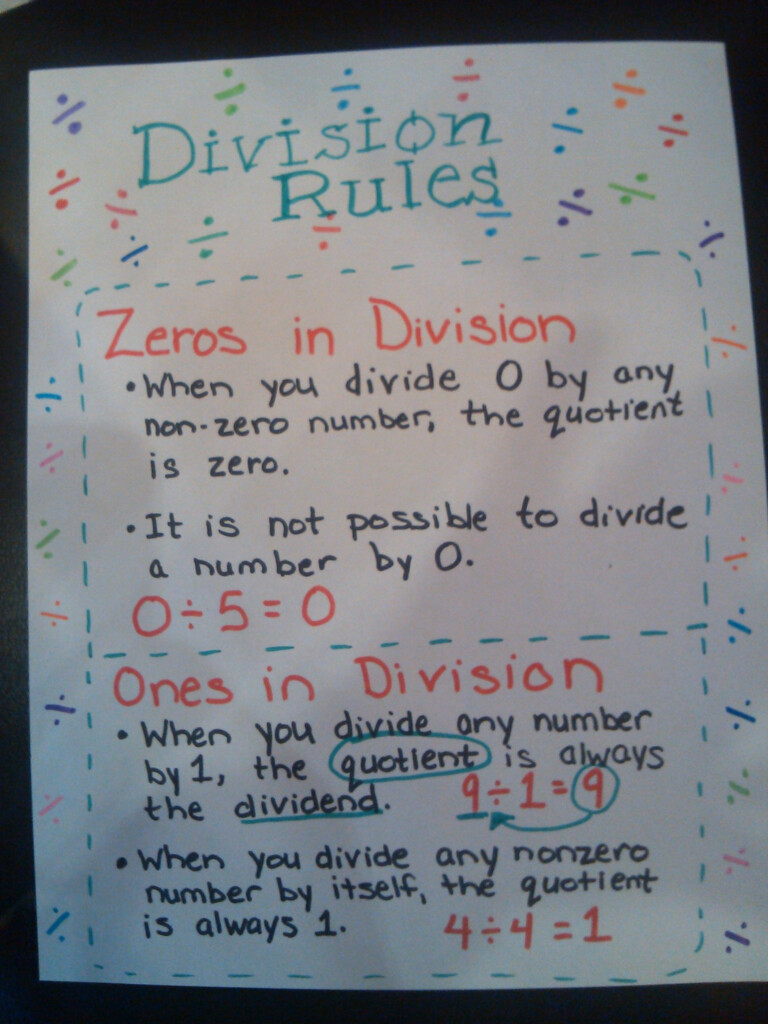 Division
Rules
Zeros in Division
•When you divide 0 by any
non-zero number, the quotient
is zero.
•It is not possible to divide
a number by 0.
0÷5=0
Ones in Division
•When you divide any number
by 1, the quotient is always
the dividend. 9÷1=9
•When you divide any nonzero
number by itself, the quotient
is always 1. 4÷4=1